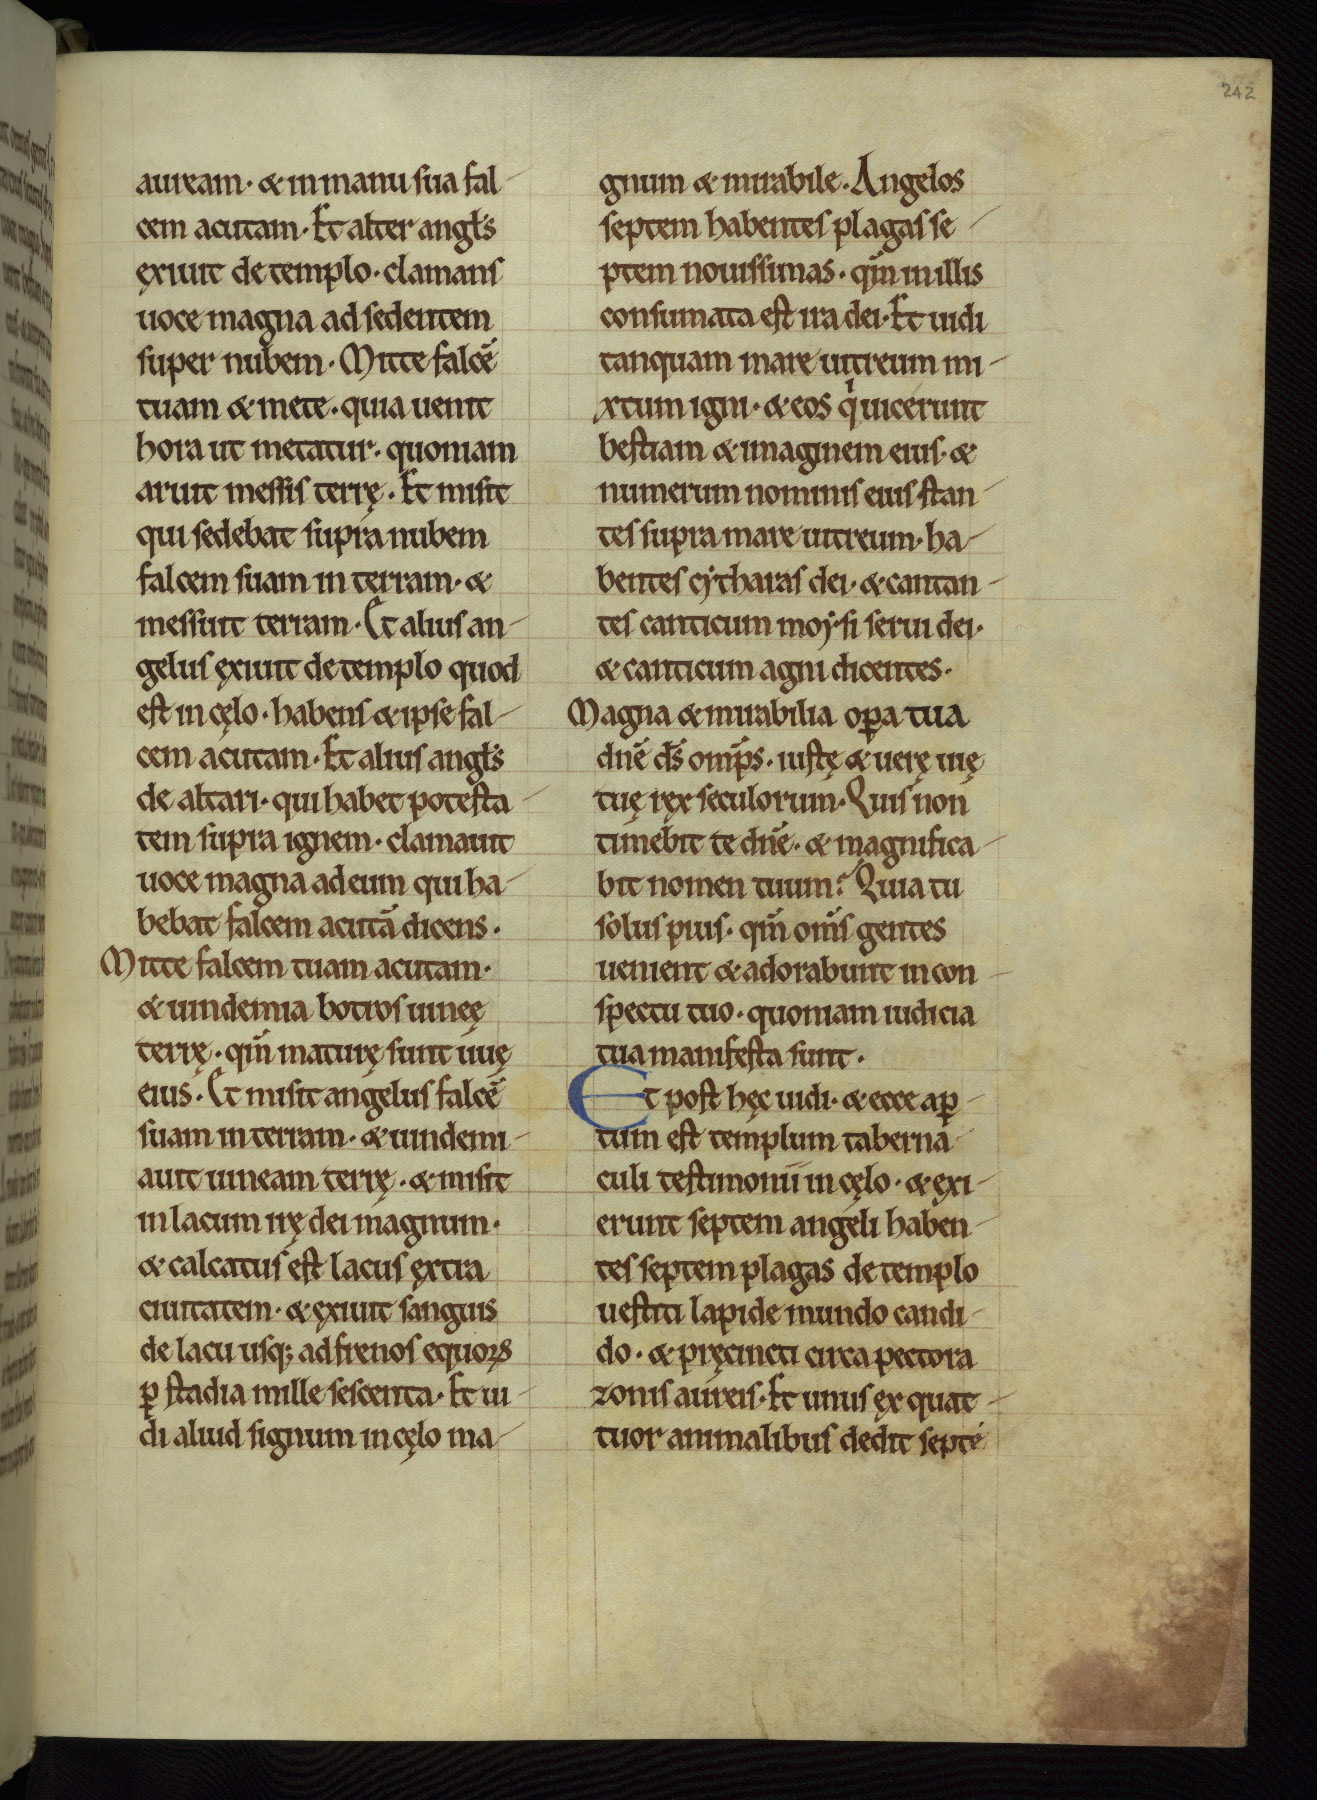 242
auream· & in manu sua fal-
cem acutam· Et alter angłs
ęxiuit de templo· clamans
uoce magna ad sedentem
super nubem· Mitte falcē
tuam & mete· quia uenit
hora ut metatur· quoniam
aruit messis terrę· Et misit
qui sedebat supra nubem
falcem suam in terram· &
messuit terram· Et alius an-
gelus ęxiuit de templo quod
est in cęlo· habens & ipse fal-
cem acutam· Et alius angłs
de altari· qui habet potesta-
tem supra ignem· clamauit
uoce magna ad eum qui ha-
bebat falcem acutā dicens·
Mitte falcem tuam acutam·
& uindemia botros uineę
terrę· qm̄ maturę sunt uuę
eius· Et misit angelus falcē
suam in terram· & uindemi-
auit uineam terrę· & misit
in lacum irę dei magnum·
& calcatus est lacus ęxtra
ciuitatem· & ęxiuit sanguis
de lacu usq; ad frenos equoꝝ
ꝑ stadia mille sescenta· Et ui-
di aliud signum in cęlo ma-
gnum & mirabile· Angelos
septem habentes plagas se-
ptem nouissimas· qm̄ in illis
consumata est ira dei· Et uidi
tanquam mare uitreum mi-
xtum igni· & eos qⁱ uicerunt
bestiam & imaginem eius· &
numerum nominis eius stan-
tes supra mare uitreum· ha-
bentes cytharas dei· & cantan-
tes canticum moy·si serui dei·
& canticum agni dicentes·
Magna & mirabilia oꝑa tua
dnē ds̄ omp̄s· iustę & uerę uię
tuę ręx seculorum· Quis non
timebit te dnē· & magnifica-
bit nomen tuum? Quia tu
solus pius· qm̄ om̄s gentes
uenient & adorabunt in con-
spectu tuo· quoniam iudicia
tua manifesta sunt·
Et post hęc uidi· & ecce aꝑ-
tum est templum taberna-
culi testimonii in cęlo· & ęxi-
erunt septem angeli haben-
tes septem plagas de templo
uestiti lapide mundo candi-
do· & pręcincti circa pectora
zonis aureis· Et unus ęx quat-
tuor animalibus dedit septē